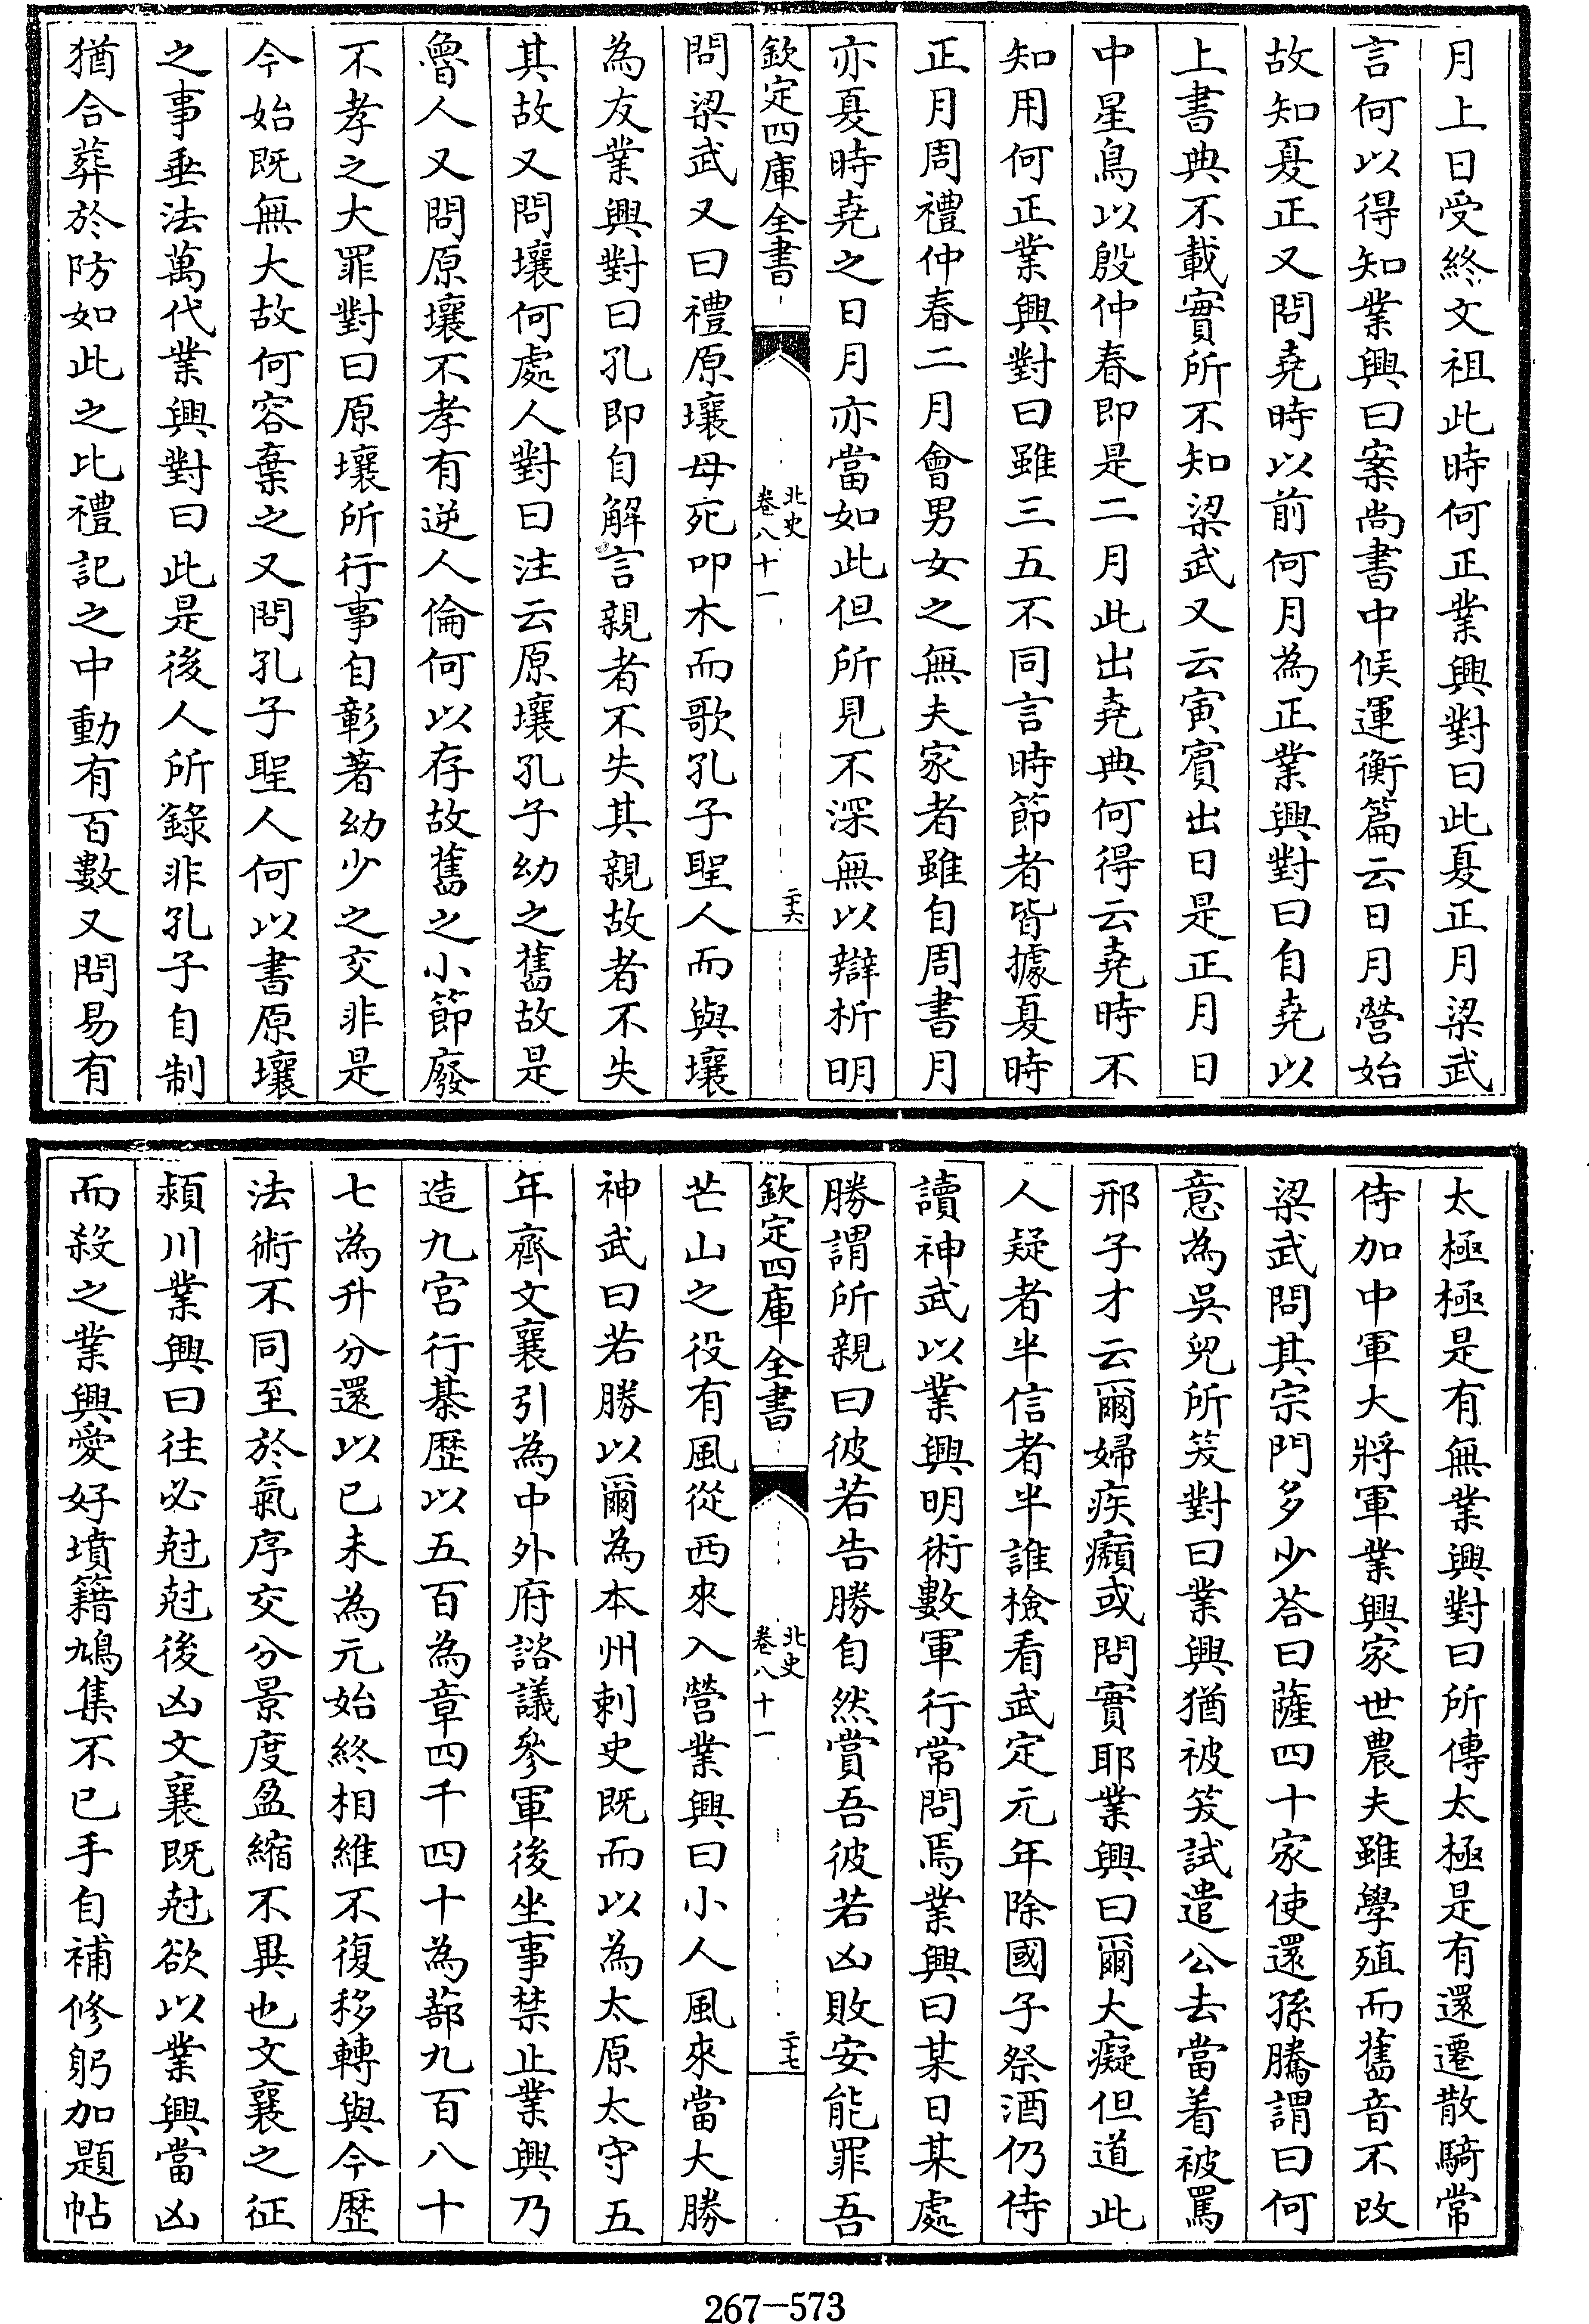 月上日受終文祖此時何正業興對曰此夏正月梁武
言何以得知業興曰案尚書中候運衡篇云日月營始
故知夏正又問堯時以前何月為正業興對曰自堯以
上書典不載實所不知梁武又云寅賓出日是正月日
中星鳥以殷仲春即是二月此出堯典何得云堯時不
知用何正業興對曰雖三五不同言時節者皆據夏時
正月周禮仲春二月會男女之無夫家者雖自周書月
亦夏時堯之日月亦當如此但所見不深無以辯析明
欽定四庫全書
北史
卷八十一
二十六
問梁武又曰禮原壤母死叩木而歌孔子聖人而與壤
為友業興對曰孔即自解言親者不失其親故者不失
其故又問壤何處人對曰注云原壤孔子幼之舊故是
魯人又問原壤不孝有逆人倫何以存故舊之小節廢
不孝之大罪對曰原壤所行事自彰著幼少之交非是
今始既無大故何容棄之又問孔子聖人何以書原壤
之事垂法萬代業興對曰此是後人所錄非孔子自制
猶合葬於防如此之比禮記之中動有百數又問易有
太極極是有無業興對曰所傳太極是有還遷散騎常
侍加中軍大將軍業興家世農夫雖學殖而舊音不改
梁武問其宗門多少荅曰薩四十家使還孫騰謂曰何
意為吳兒所笑對曰業興猶被笑試遣公去當着被罵
邢子才云爾婦疾癲或問實耶業興曰爾大癡但道此
人疑者半信者半誰檢看武定元年除國子祭酒仍侍
讀神武以業興明術數軍行常問焉業興曰某日某處
勝謂所親曰彼若告勝自然賞吾彼若凶敗安能罪吾
欽定四庫全書
北史
卷八十一
二十七
芒山之役有風從西來入營業興曰小人風來當大勝
神武曰若勝以爾為本州刺史既而以為太原太守五
年齊文襄引為中外府諮議參軍後坐事禁止業興乃
造九宮行棊歷以五百為章四千四十為蔀九百八十
七為升分還以已未為元始終相維不復移轉與今歷
法術不同至於氣序交分景度盈縮不異也文襄之征
潁川業興曰往必尅尅後凶文襄既尅欲以業興當凶
而殺之業興愛好墳籍鳩集不已手自補修躬加題帖
267-573